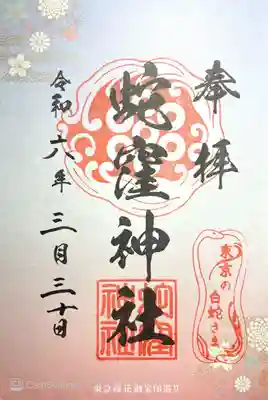 奉拝
蛇窪神社
令和六年 三月三十日
東京の
白蛇さま